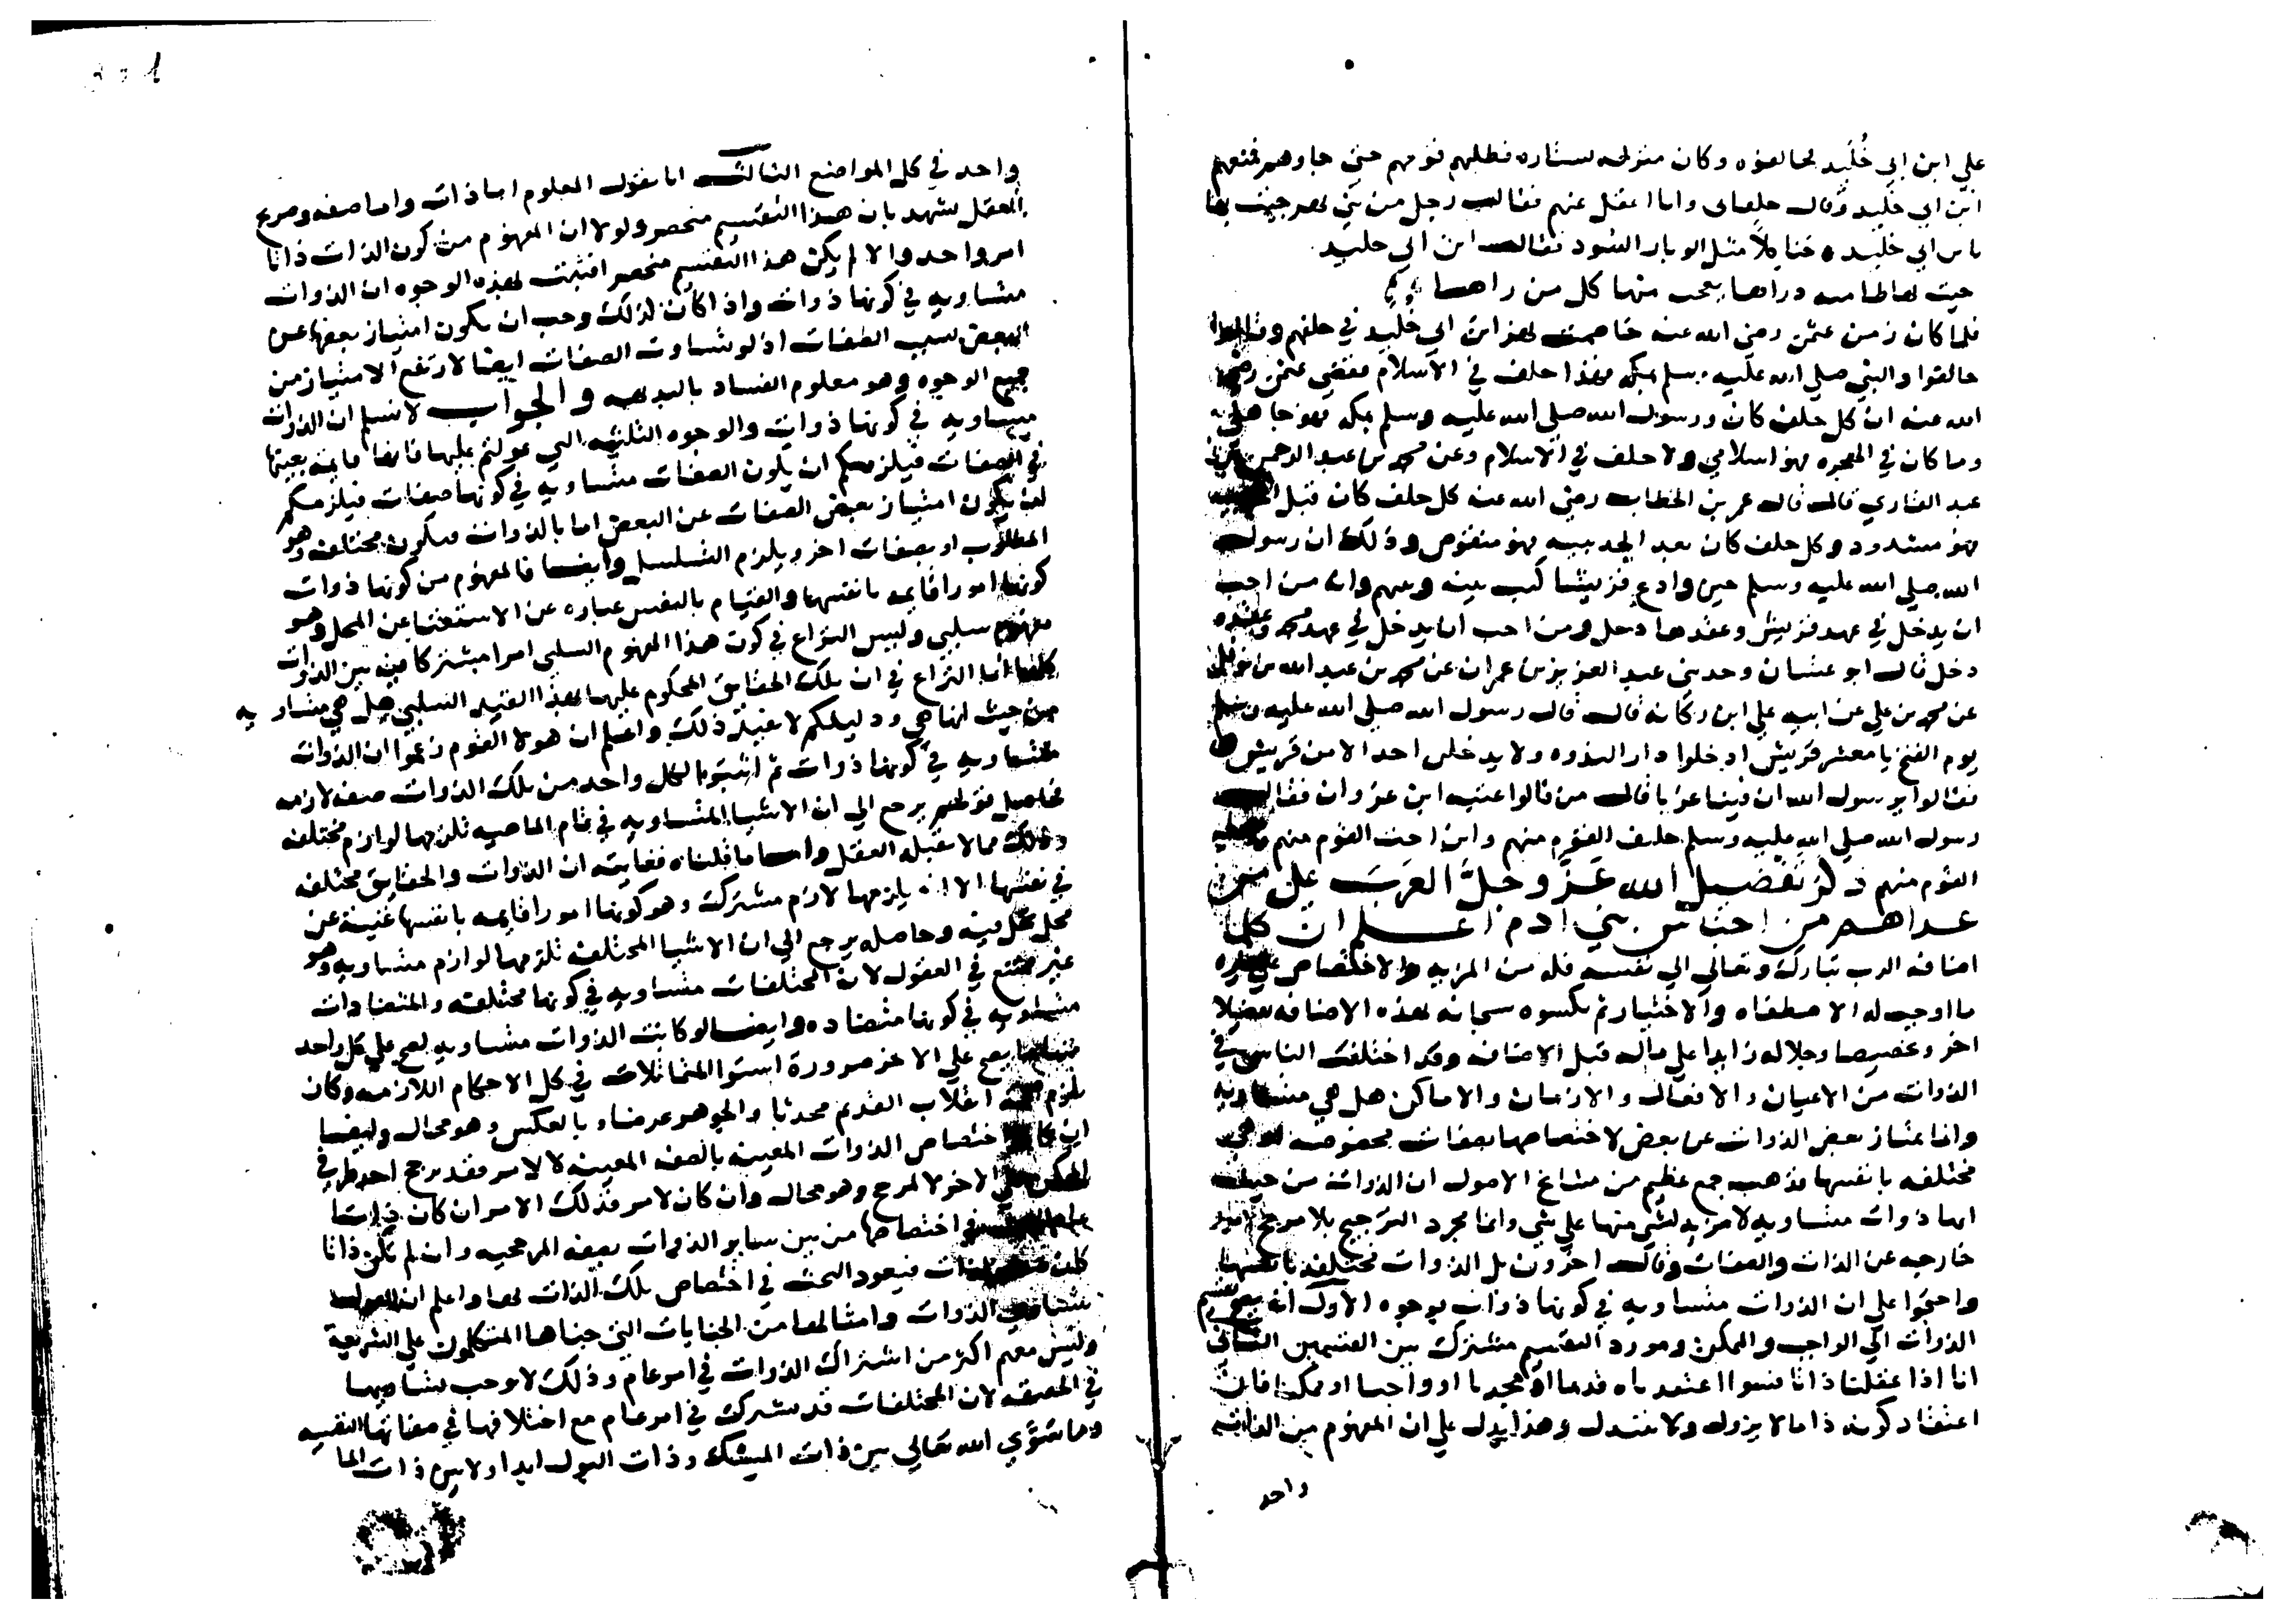 علي ابن ابي خُلَيد لحالفوه وكان منزله بستاره فطلبهم قومهم حتي جاوهم فمنعهم
ابن ابي خليد وقال حلفاى وانا اعقل عنهم فقال رجل من بني نصر جيت بها
يا بن ابي خليد مثل الوبار السود فقال ابن ابي خليد
حيث منها كل من راها
فلما كان زمن عثمن رضي الله عنه خاصمت نصر ابن ابي خليد في حلفهم وقالوا
حالفوا والنبي صلي الله عليه وسلم بمكه فهذا حلف في الاسلام فقضي عثمن رضي
الله عنه ان كل حلف كان ورسول الله صلي الله عليه وسلم بمكه فهو جاهلي
وما كان في الهجره فهو اسلامي ولا حلف في الاسلام وعن محمد بن عبد الرحمن بن
عبد القاري قال قال عمر بن الخطاب رضي الله عنه كل حلف كان قبل الحديبيه
فهو مشدود وكل حلف كان بعد الحديبيه فهو منقوض وذلك ان رسول
الله صلي الله عليه وسلم حين وادع قريشا كتب بينه وبينهم وانه من احب
ان يدخل في عهد قريش وعقدها دخل ومن احب ان يدخل في عهد محمد وعقده
دخل قال ابو غسان وحدثني عبد العزيز بن عمران عن محمد بن عبد الله بن
عن محمد بن علي عن ابيه علي ابن ركانه قال قال رسول الله صلي الله عليه وسلم
يوم الفتح يا معشر قريش ادخلوا دار الندوه ولا يدخلن احد الا من قريش
فقالوا يرسول الله ان فينا غربا قال من قالوا عتبه ابن غزوان فقال
رسول الله صلي الله عليه وسلم حليف القوم منهم وابن اخت القوم منهم
القوم منهم ذكر تفضيل الله عز وجل العرب علي من
عداهم من اجناس بني ادم اعلم ان كلما
اضافه الرب تبارك وتعالي الي نفسه فله من المزيه والاختصاص علي غيره
ما اوجب له الاصطفاه والاختيار ثم يكسوه سبحانه بهذه الاضافه تفضيلا
اخر وتخصيصا وجلاله زايدا علي ماله قبل الاضافه وقد اختلفت الناس في
الذوات من الاعيان والافعال والازمان والاماكن هل هي متساويه
وانما يمتاز بعض الذوات عن بعض لاختصاصها بصفات مخصوصه او هي
مختلفه بانفسها فذهب جمع عظيم من مشايخ الاصول ان الذوات من حيث
انها ذوات متساويه لا مزيه لشي منها علي شي وانما مجرد الترجيح بلا مرجح
خارجه عن الذات والصفات وقال اخرون بل الذوات مختلفه بانفسها
واحتجوا علي ان الذوات متساويه في كونها ذوات بوجوه الاول انه يصح تقسيم
الذوات الي الواجب والممكن ومورد التقسيم مشترك بين القسمين الثاني
انا اذا عقلنا ذاتا فسوا اعتقدناه قديما او محدثا او واجبا او ممكنا فان
اعتقاد كونه ذاتا لا يزول ولا يتبدل وهذا يدل علي ان المفهوم من الذات
واحد
واحد في كل المواضع الثالث انا نقول المعلوم اما ذات واما صفه وصريح
العقل يشهد بان هذا التقسيم منحصر ولولا ان المفهوم من كون الذات ذاتا
امر واحد والا لم يكن هذا التقسيم منحصرا فثبت بهذه الوجوه ان الذوات
متساويه في كونها ذوات واذا كان كذلك وجب ان يكون امتياز بعضها عن
البعض بسبب الصفات اذ لو تساوت الصفات ايضا لارتفع الامتياز من
جميع الوجوه وهو معلوم الفساد بالبديهه والجواب لا نسلم ان الذوات
متساويه في كونها ذوات والوجوه الثلثه التي عولتم عليها فانها قايمه بعينها
في الصفات فيلزمكم ان يكون الصفات متساويه في كونها صفات فيلزمكم
ان يكون امتياز بعض الصفات عن البعض اما بالذوات فيكون مختلفه وهو
المطلوب او بصفات اخر ويلزم التسلسل وايضا فالمفهوم من كونها ذوات
كونها امورا قايمه بانفسها والقيام بالنفس عباره عن الاستغنا عن المحل وهو
مفهوم سلبي وليس النزاع في كون هذا المفهوم السلبي امرا مشتركا فيه بين الذوات
كلها انما النزاع في ان تلك الحقايق المحكوم عليها بهذا القيد السلبي هل هي متساويه
من حيث انها هي ودليلكم لا يفيد ذلك واعلم ان هولا القوم زعموا ان الذوات
متساويه في كونها ذوات ثم اثبتوا لكل واحد من تلك الذوات صفه لازمه
فحاصل قولهم يرجع الي ان الاشيا المتساويه في تمام الماهيه تلزمها لوازم مختلفه
وذلك مما لا يقبله العقل واما ما قلناه فغايته ان الذوات والحقايق مختلفه
في نفسها الا انه يلزمها لازم مشترك وهو كونها امورا قايمه بانفسها غنية عن
محل تحل فيه وحاصله يرجع الي ان الاشيا المختلفه تلزمها لوازم متساويه وهو
غير ممتنع في العقول لان المختلفات متساويه في كونها مختلفه والمتضادات
متساويه في كونها متضاده وايضا لو كانت الذوات متساويه لصح علي كل واحد
منها ما يصح علي الاخر ضرورة استوا المتماثلات في كل الاحكام اللازمه وكان
يلزم انقلاب القديم محدثا والجوهر عرضا وبالعكس وهو محال وايضا
ان كان اختصاص الذوات المعينه بالصفه المعينه لا لامر فقد يرجح احد طرفي
الممكن علي الاخر لا لمرجح وهو محال وان كان لامر فذلك الامر ان كان ذاتا
اختصاصها من بين ساير الذوات بصفه المرجحيه وان لم تكن ذاتا
كان فيعود البحث في اختصاص تلك الذات بها واعلم ان القول
بتساوي الذوات وامثالها من الجنايات التي جناها المتكلمون علي الشريعة
وليس معهم اكثر من اشتراك الذوات في امر عام وذلك لا يوجب تساويها
في الحقيقه لان المختلفات قد تشترك في امر عام مع اختلافها في صفاتها النفسيه
وما سَوَّي الله تعالي بين ذات المسك وذات البول ابدا ولا بين ذات الما